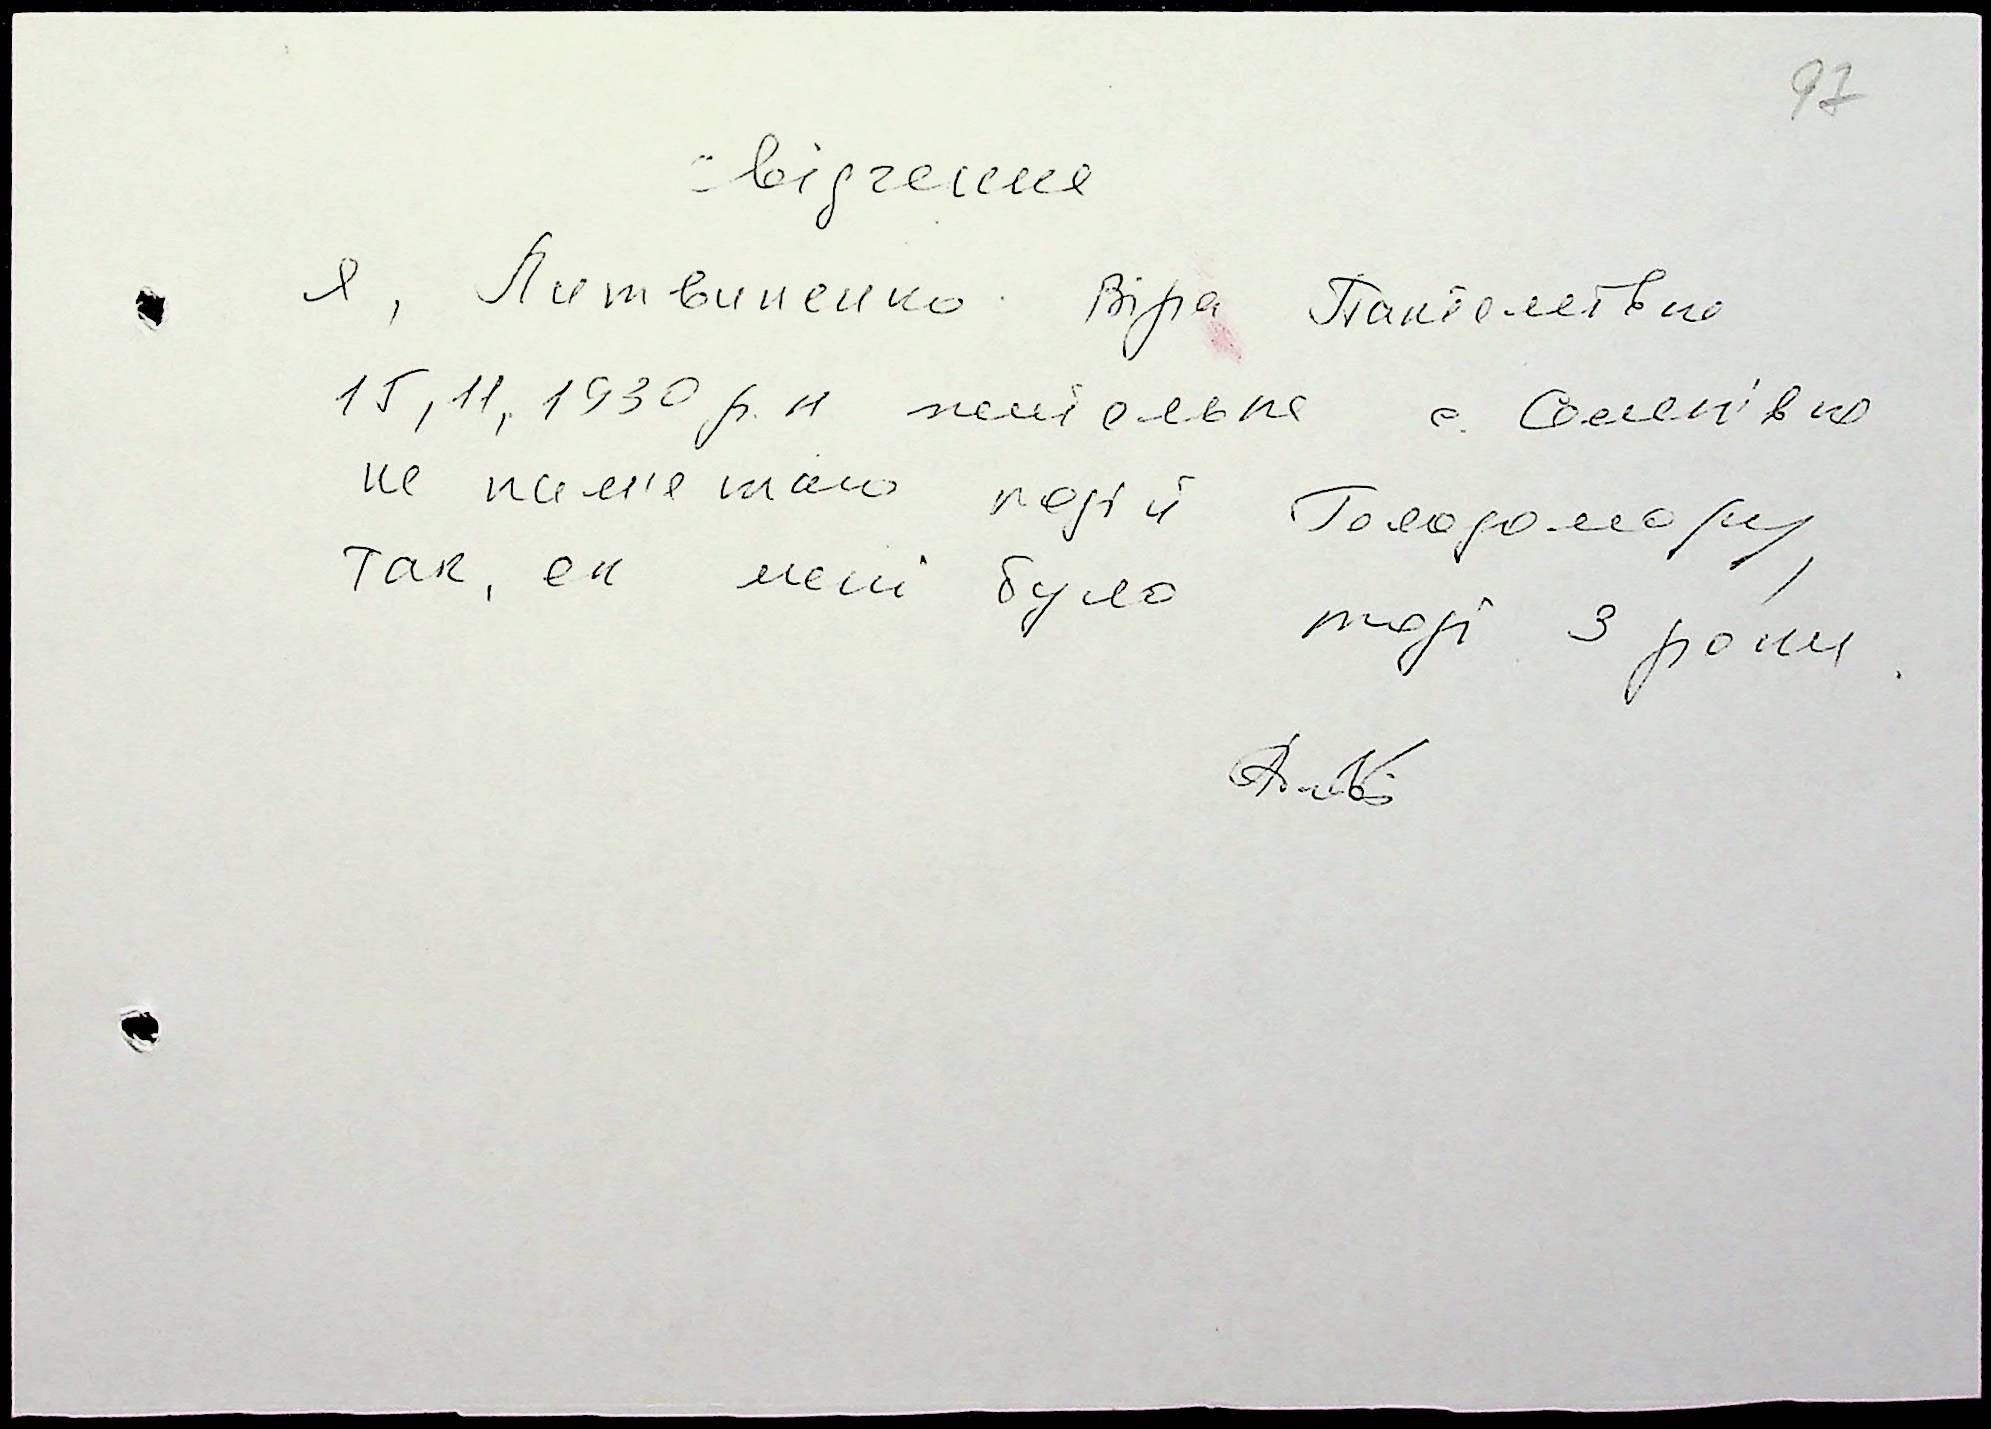 97
свідчення
Я, Литвиненко Віра Пантеліївна
15, 11, 1930 р. н жителька с. Семенівка
не пам'ятаю подій Голодомору,
так, як мені було тоді 3 роки.